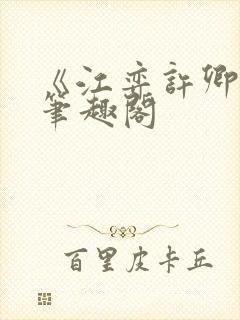 《江弈許卿
筆趣閣
百里皮卡丘